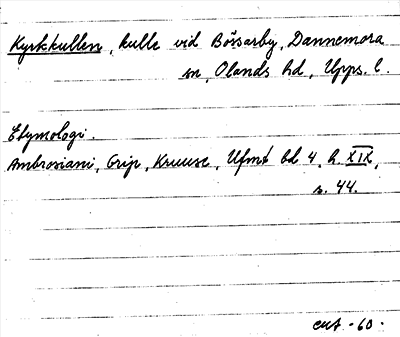 Kyrkkullen, kulle vid Bössarby, Dannemora
sn, Olands hd, Upps. l.
Etymologi.
Ambrosiani, Grip, Kruuse, Ufmt bd 4, h. XIX,
s. 44.
-60-